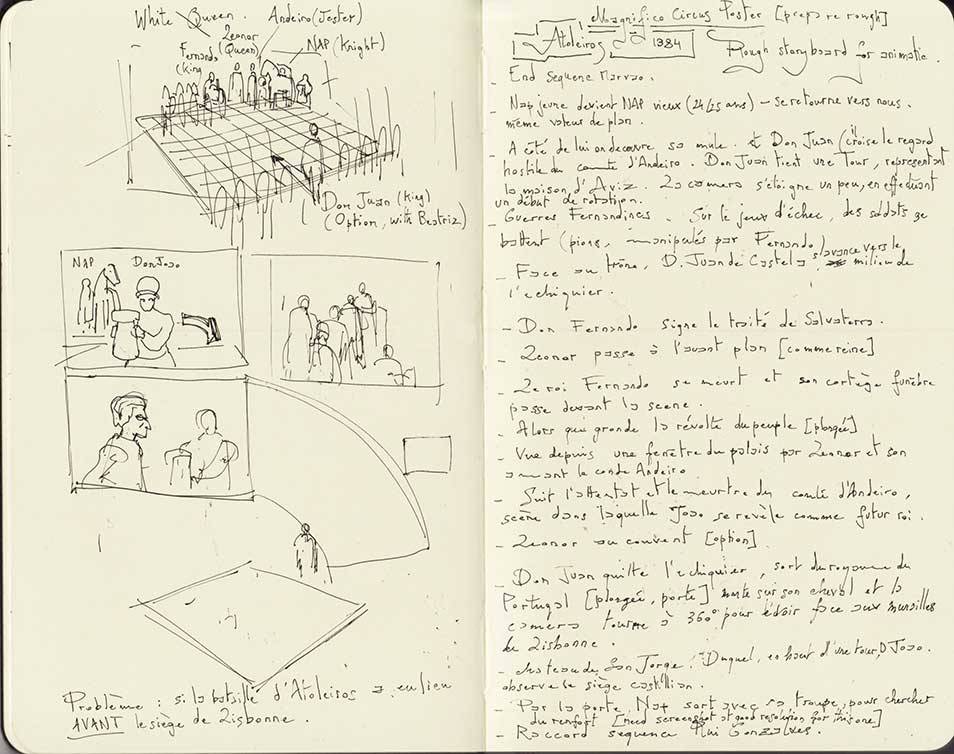 White Queen.
Andeiro (Jester)
Leonor
(Queen)
Fernando
(King
NAP (Knight)
Don Juan (King)
(Option, with Beatriz)
NAP
Don Joao
Problème : si la bataille d'Atoleiros a eu lieu
AVANT le siège de Lisbonne.
Magnifico Circus Poster [prepare rough]
Atoleiros 1384
Rough storyboard for animatic.
- End sequence Marvao.
- Nap jeune devient NAP vieux (24/25 ans) - se retourne vers nous.
même valeur de plan.
- A côté de lui on découvre sa mule. et Don Juan (il croise le regard
hostile du comte d'Andeiro. Don Juan tient une Tour, représentant
la maison d'Aviz. La camera s'éloigne un peu, en effectuant
un début de rotation.
Guerres Fernandines. Sur le jeux d'échec, des soldats se
battent (pions, manipulés par Fernando)
- Face au trône, D. Juan de Castela s'avance vers le
milieu de
l'echiquier.
- Don Fernando signe le traité de Salvaterra.
- Leonor passe à l'avant plan [comme reine]
- Le roi Fernando se meurt et son cortège funèbre
passe devant la scene.
- Alors que gronde la révolte du peuple [plongée]
- Vue depuis une fenêtre du palais par Leonor et son
amant le conde Andeiro
- Suit l'attentat et le meurtre du comte d'Andeiro,
scène dans laquelle Joao se revèle comme futur roi.
- Leonor au couvent [option]
- Don Juan quitte l'echiquier, sort du royaume du
Portugal [plongée, porte] monte sur son cheval et la
caméra tourne à 360° pour . face aux murailles
de Lisbonne.
- chateau de San Jorge. Duquel, en haut d'une tour, D Joao.
observe le siège castillian.
- Par la porte, Nap sort avec sa troupe, pour chercher
du renfort [need screenshot at good resolution for this one]
- Raccord sequence Rui Gonzalves.